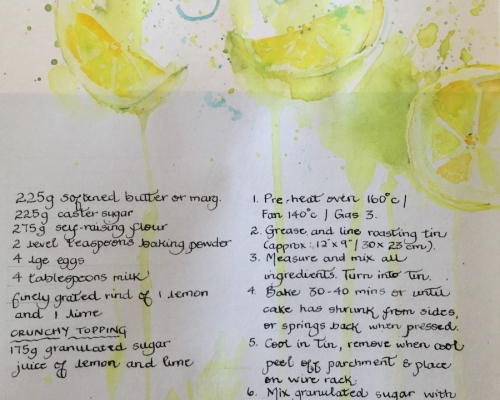 225g softened butter or marg.
225g caster sugar
275g self-raising flour
2 level teaspoons baking powder
4 lge eggs
4 tablespoons milk
finely grated rind of 1 lemon
and 1 lime
CRUNCHY TOPPING
175g granulated sugar
juice of lemon and lime
1. Pre-heat oven 160°c /
Fan 140°c / Gas 3.
2. Grease and line roasting tin
(approx: 12"x 9" / 30x 23 cm).
3. Measure and mix all
ingredients. Turn into tin.
4. Bake 30-40 mins or until
cake has shrunk from sides,
or springs back when pressed.
5. Cool in tin, remove when cool
peel off parchment & place
on wire rack.
6. Mix granulated sugar with